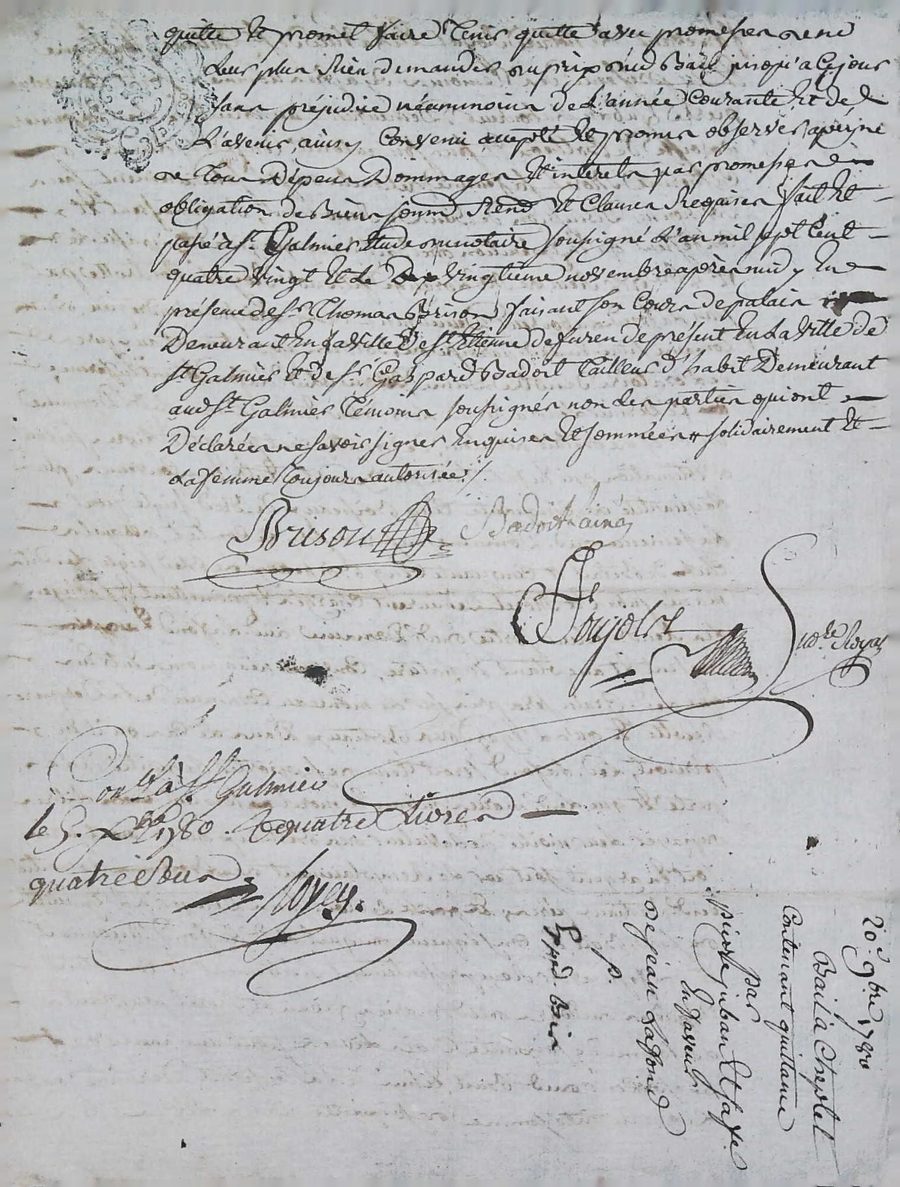 quitte et promet faire tenir quitte avec promesse de ne
leur plus Rien demander du prix dud Bail jusqu'a ce jour
sans préjudice néanmoins de L'année Courante et de
L'avenir ainsy Convenu accepté et promis observer a peine
de tous dépens Dommages et interets par promesse
obligation de Biens soumis Renon et Clauses Requises fait et
passé à St. Galmier Etude du notaire soussigné L'an mil sept Cent
quatre vingt et le vingtieme novembre après midy En
présence de Sr. Thomas Brison faisant son Cours de palais
Demeurant En la ville de St. Etienne de furen de présent En la ville de
St. Galmier et de Sr. Gaspard Badoit Tailleur d'habit Demeurant
aud St. Galmier Témoins soussignés non les parties qui ont
Déclarées ne savoir signer Enquises et sommées + solidairement et
La femme Toujours autorisée ./.
Brison Badoit aine
no.re Royal
Con.lé à St. Galmier
le 5. 1780. quatre Livres
quatre Sous
20.e 9.bre 1780
Bail à Cheptel
Contenant quittance
par
pierre juban Et sa fe
En faveur
de jean Lafond
p.
Exped. Bien